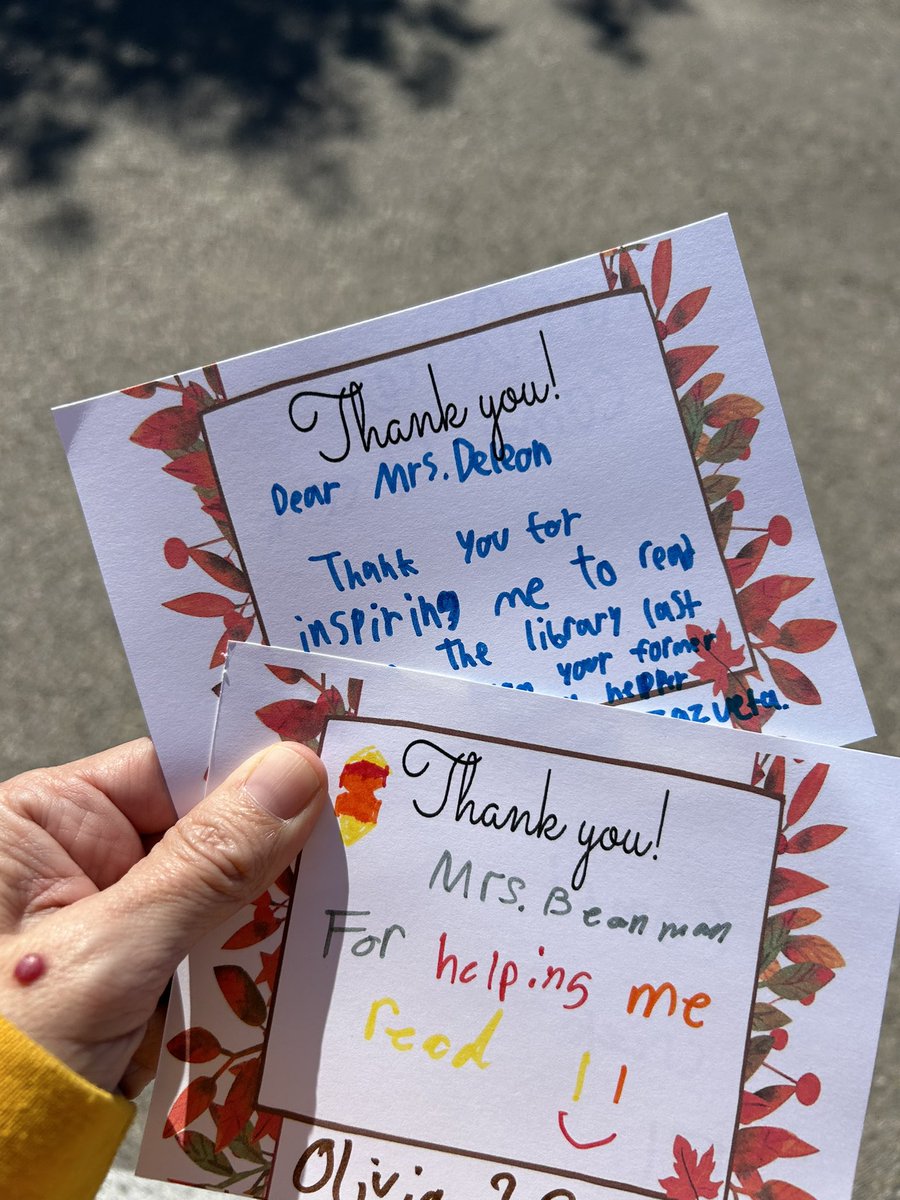 Thank you!
Dear Mrs. Deleon
Thank you for
inspiring me to read
the library last
your former
helper
Thank you!
Mrs. Beanman
For helping me
read
Olivia